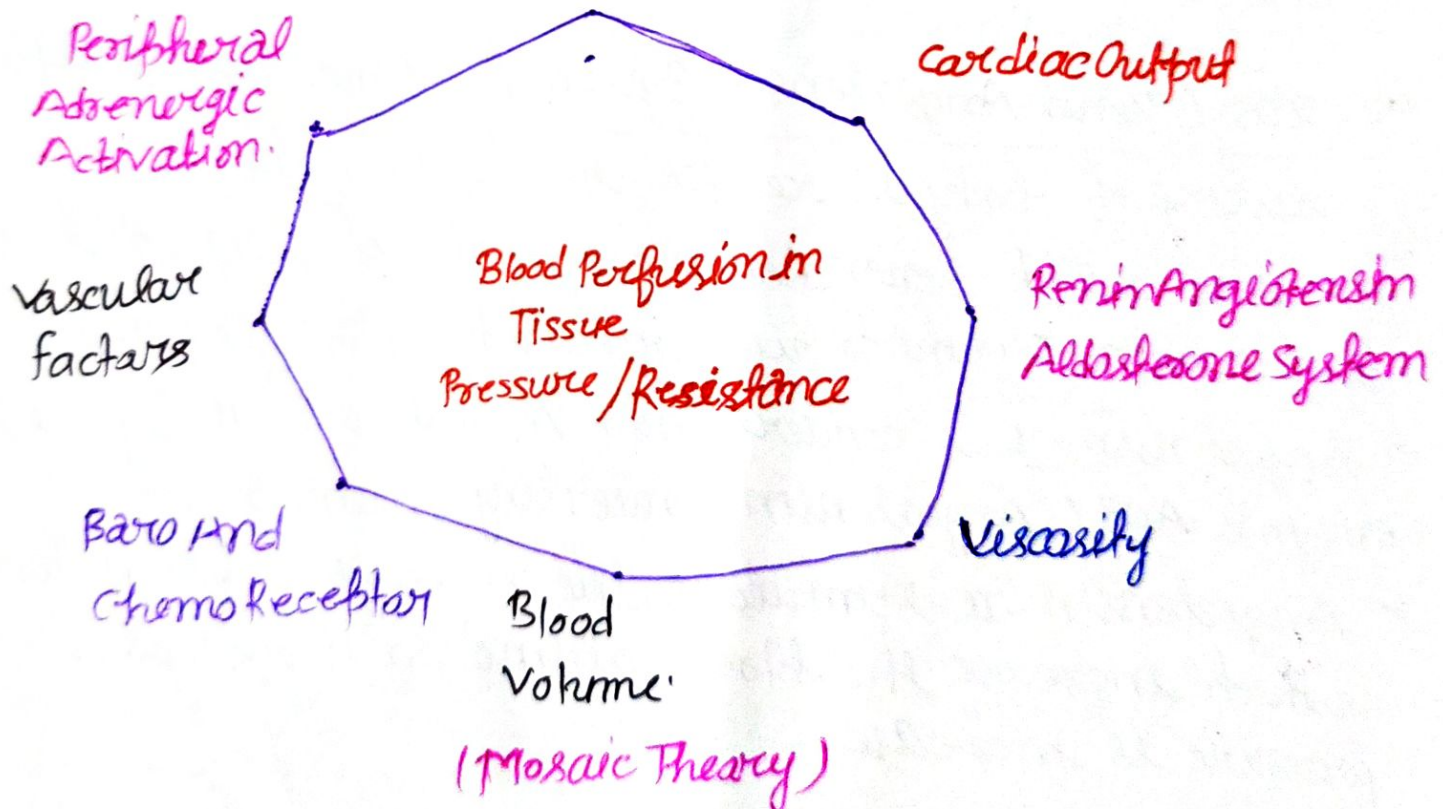 Peripheral
Adrenergic
Activation.
Cardiac Output
Vascular
factors
Blood Perfusion in
Tissue
Pressure / Resistance
Renin Angiotensin
Aldosterone System
Baro And
Chemo Receptor
Viscosity
Blood
Volume.
(Mosaic Theory)